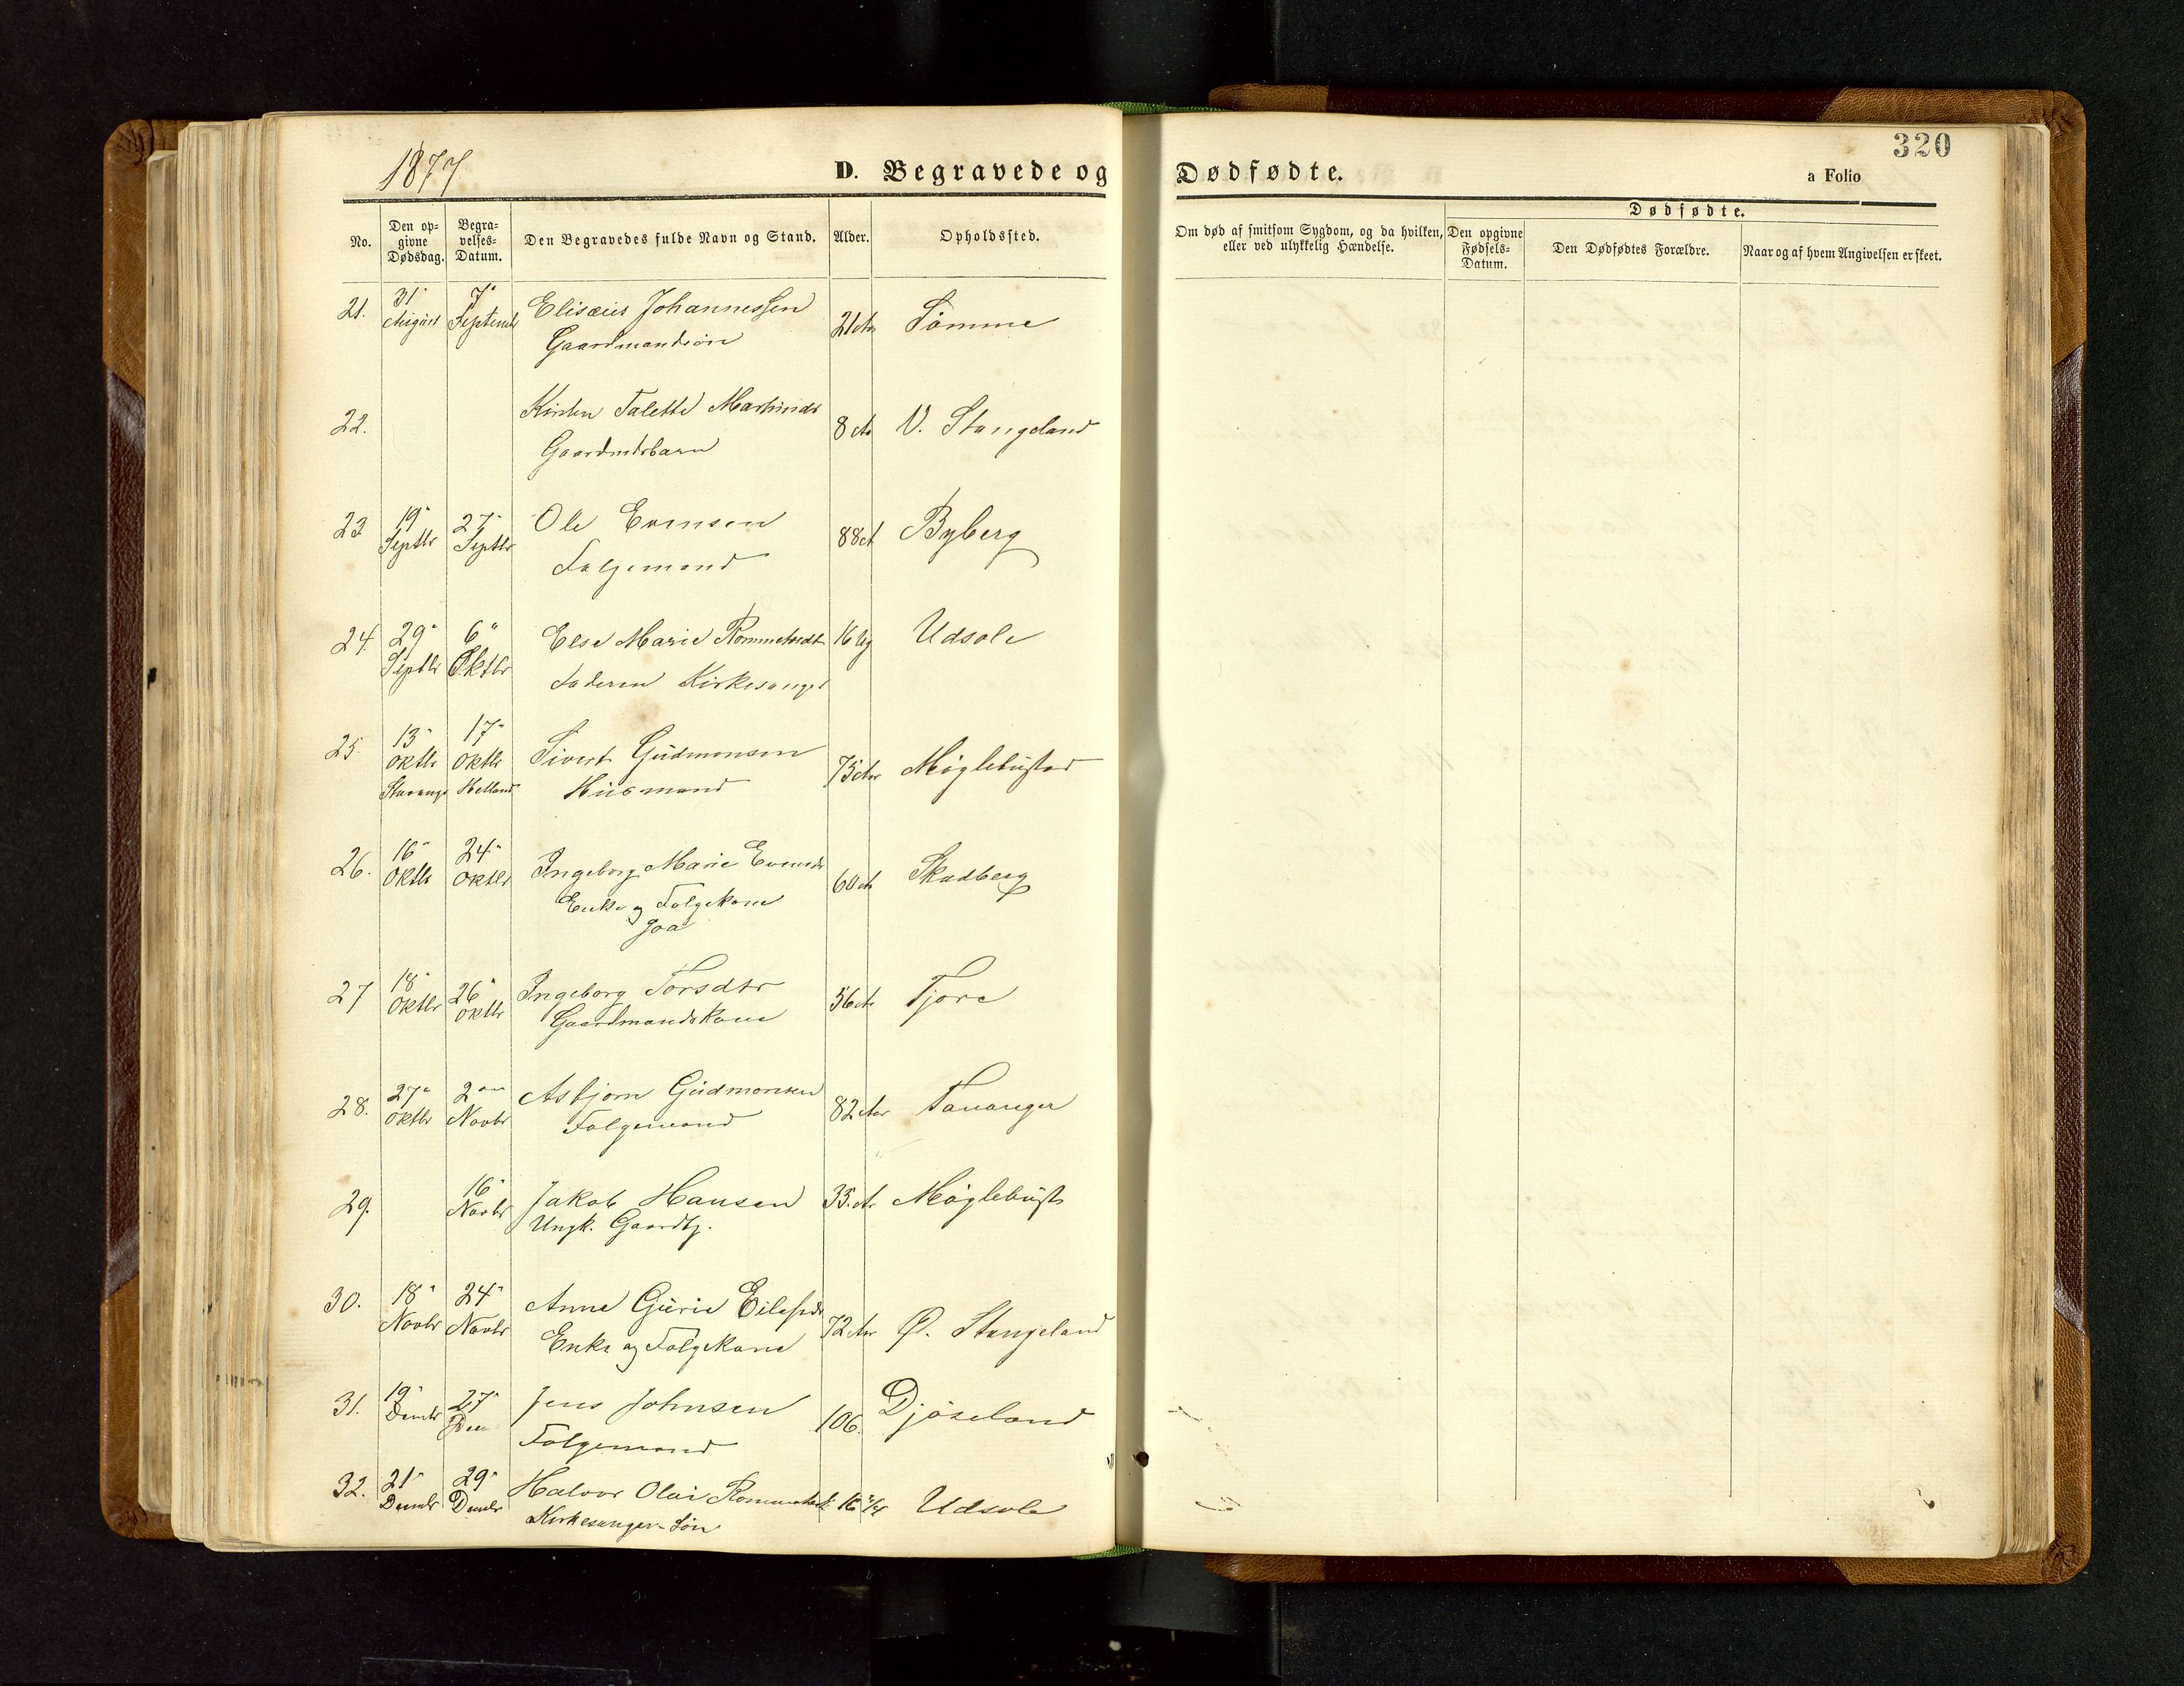 1877
D. Begravede og Dødfødte.
320
a Folio
No. Den opgivne Dødsdag. Begravelses-Datum. Den Begravedes fulde Navn og Stand. Alder. Opholdssted. Om død af smitsom Sygdom, og da hvilken, eller ved ulykkelig Hændelse.
Dødfødte.
Den opgivne Fødsels-Datum. Den Dødfødtes Forældre. Naar og af hvem Angivelsen er skeet.
21. 31" August 7" Septembr Elisæus Johannessen 21 Aar Sømme
Gaardmandssøn
22. Kirsten Talette Martinsdr 8 A V. Stangeland
Gaardmdsbarn
23 19" Septbr 27" Septbr Ole Evensen 88 A Byberg
Folgemand
24. 29" Septbr 6" Oktbr Else Marie 16 Ug Udsole
Faderen Kirkesanger
25. 13" Oktbr 17" Oktbr Sivert Gudmunsen 75 Aar Møglebustad
Stavanger Helland Husmand
26. 16" Oktbr 24" Oktbr Ingeborg Marie Evensdr 60 A Skadberg
Enke og Folgekone
Joa
27 18" Oktbr 26" Oktbr Ingeborg Torsdtr 56 A Tjore
Gaardmandskone
28. 27" Oktbr 2den Novbr Asbjørn Gudmonsen 82 Aar Tananger
Folgemand
29. 16" Novbr Jakob Hansen 35. A. Møglebust
Ungk. Gaardbg.
30. 18" Novbr 24" Novbr Anna Gurie Eilefsdr 72 Aar Ø. Stangeland
Enke og Folgekone
31. 19" Decmbr 27" Dec Jens Johnsen 106. Djøseland
Folgemand
32. 21" Decmbr 29" Decmbr Halvor Olai 16 Udsole
Kirkesanger-Søn